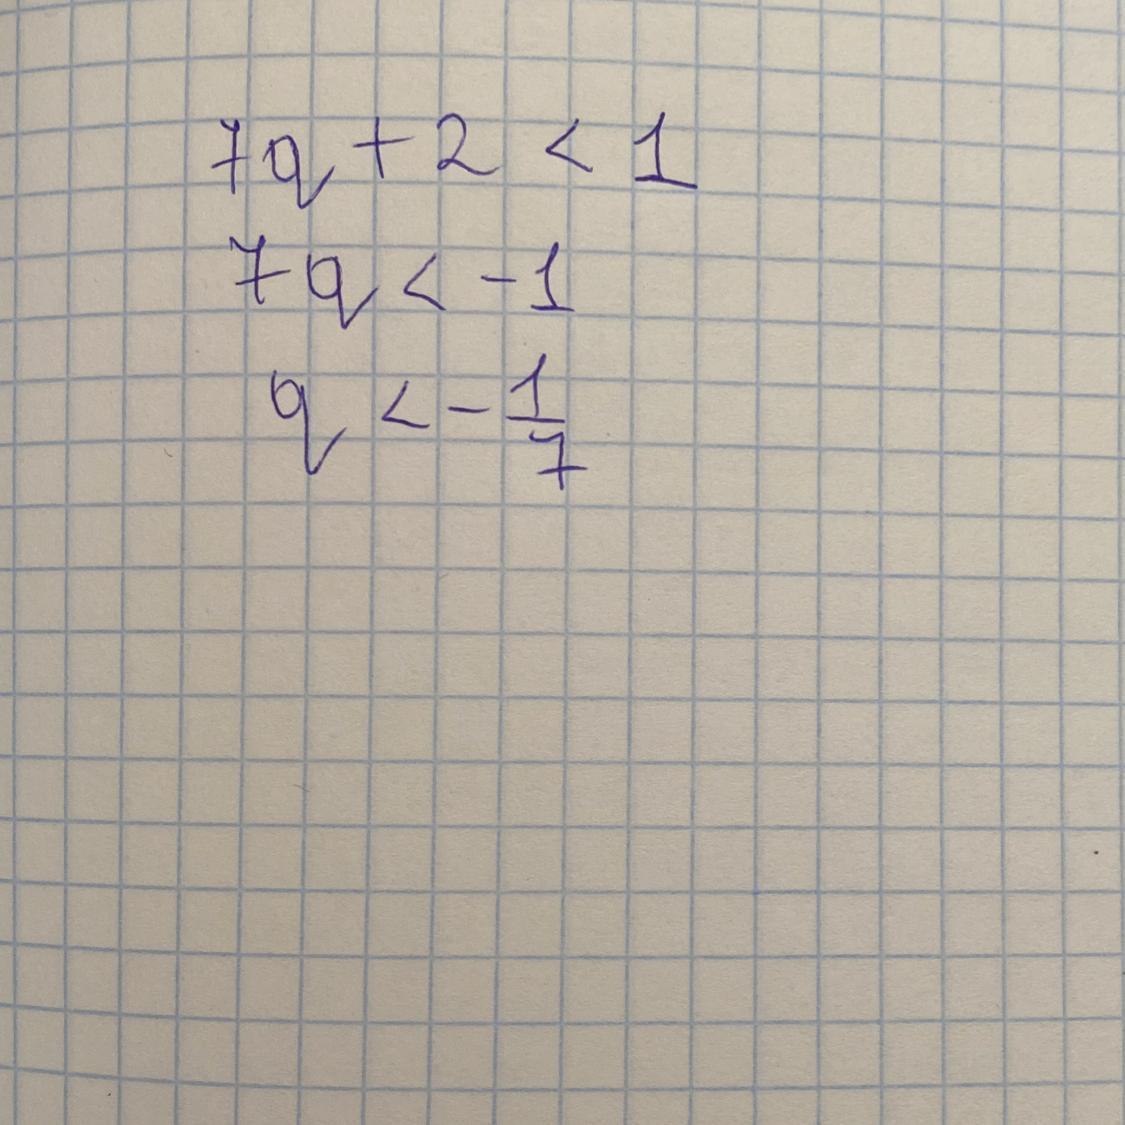 7q + 2 < 1
7q < -1
q < -1/7